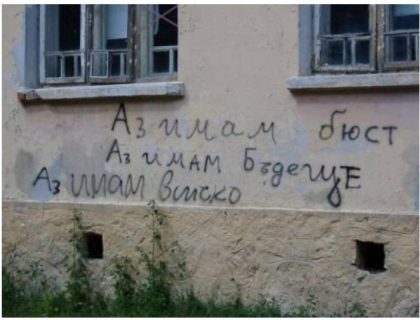 Аз имам бюст
Аз имам бъдеще
Аз имам всичко